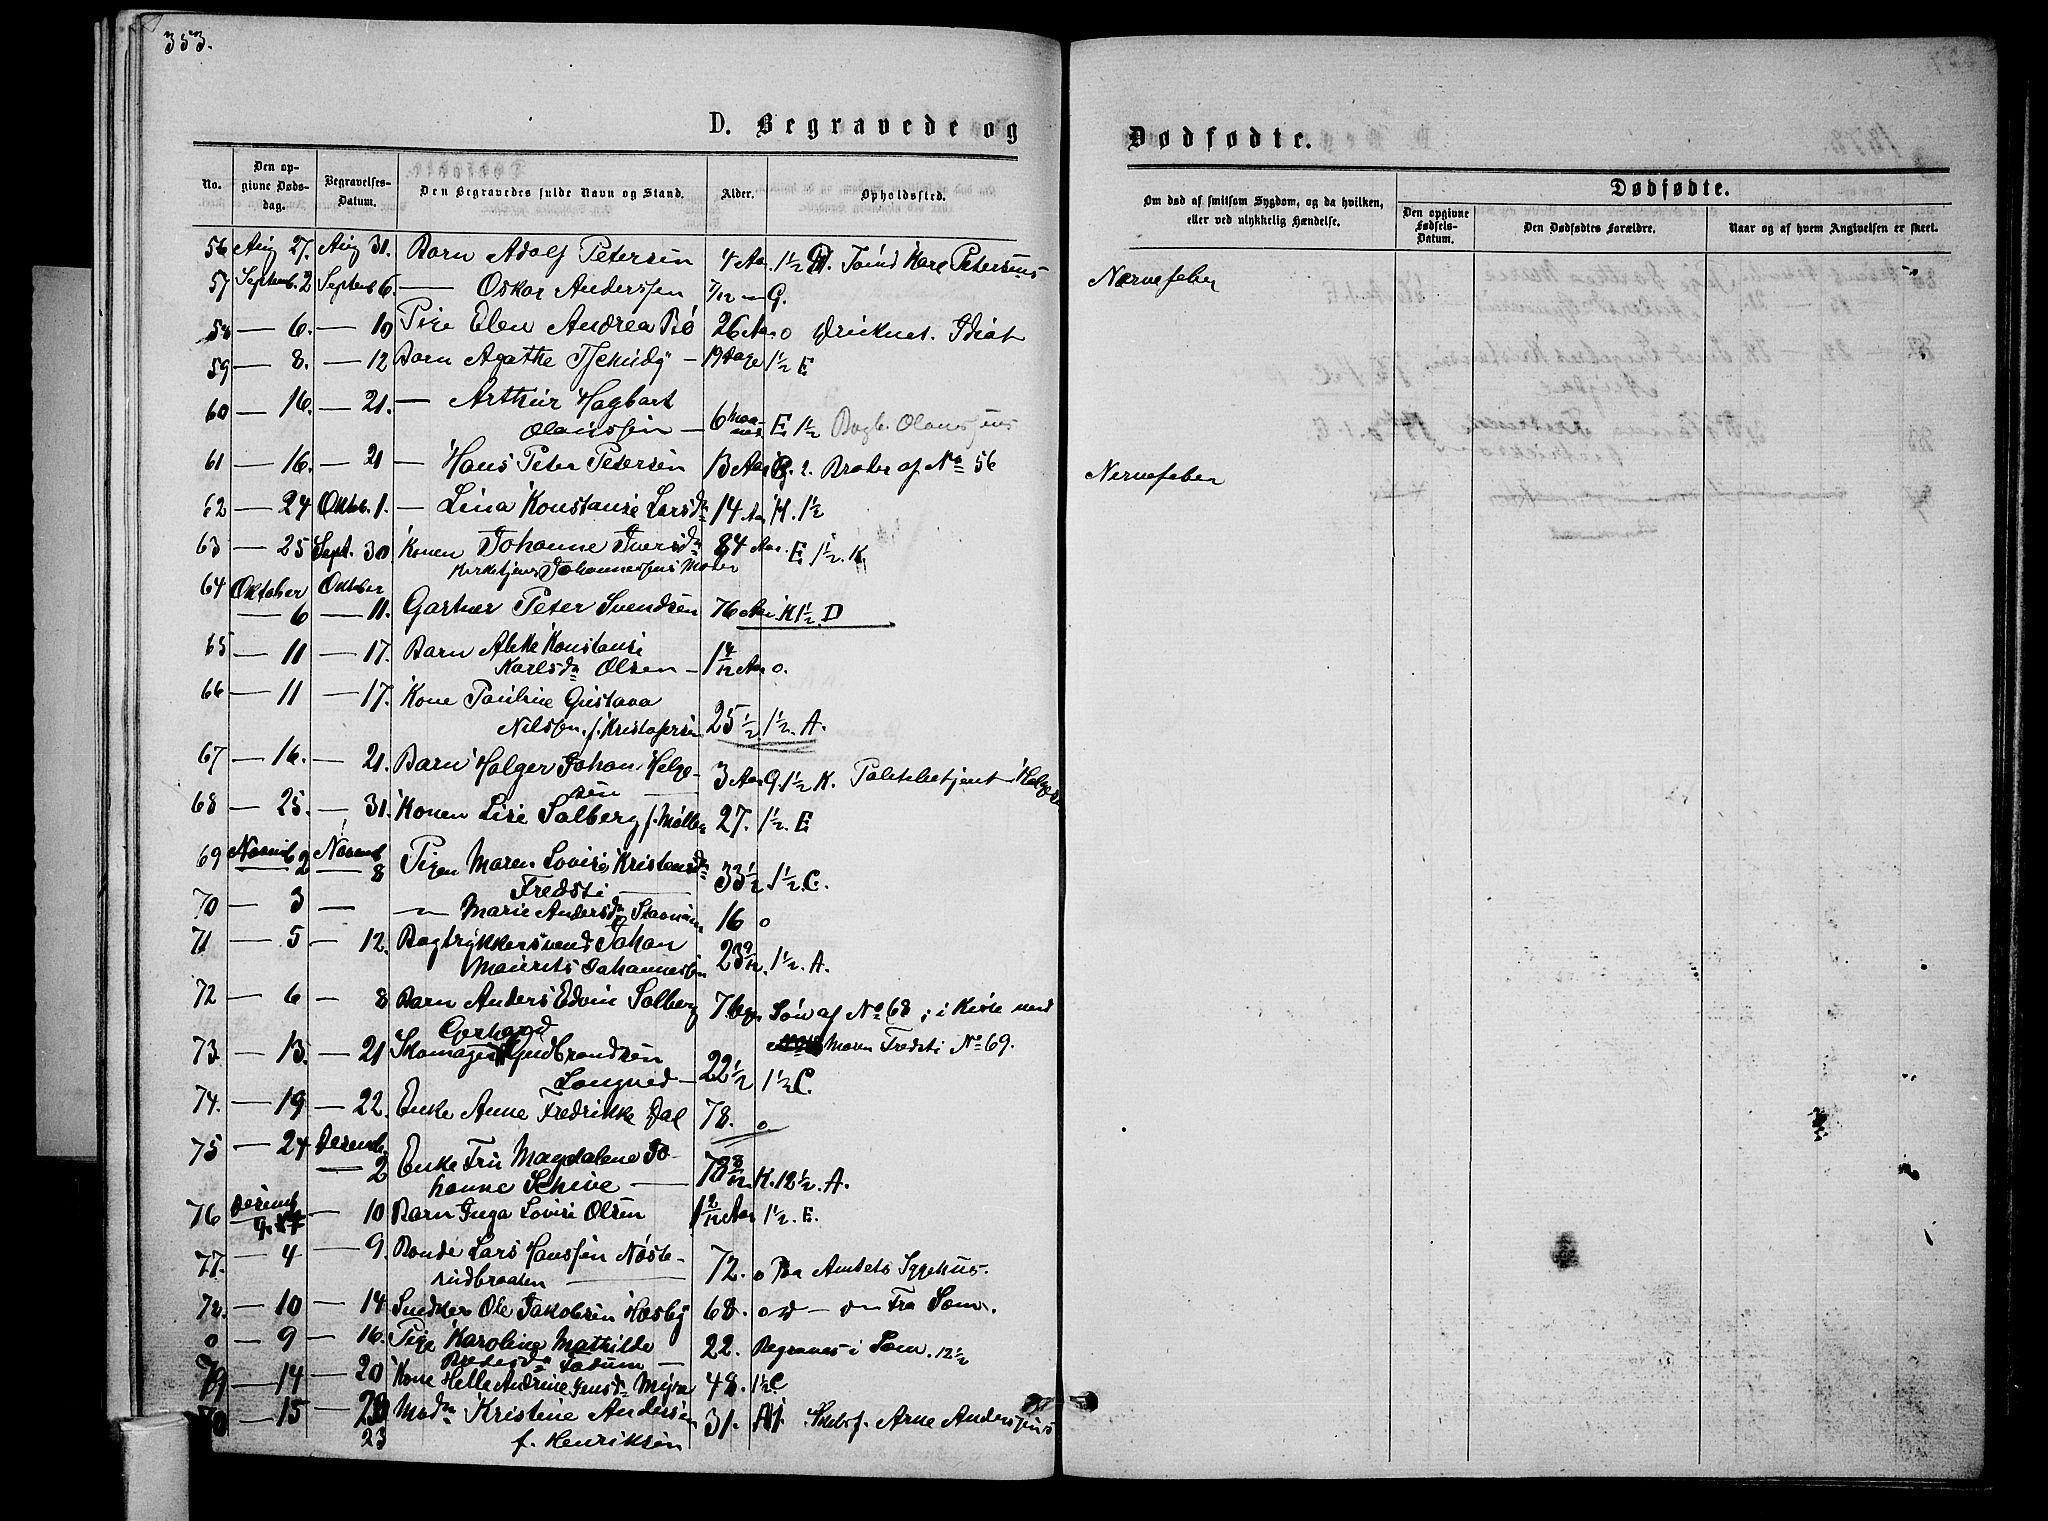 353.
D. Begravede og
No.
Den op-
givne Døds-
dag.
Begravelses-
Datum.
Den Begravedes fulde Navn og Stand.
Alder.
Opholdssted.
56 Aug 27. Aug 31. Barn Adolf Petersen 4 Aar. 1½ Karl Petersens
57 Septemb. 2 Septemb 6. — Oskar Anderssen 7/12 — G.
58 — 6. — 10 Pige Elen Andrea Bø 26 Aar o Druknet. Idiot
59 — 8. — 12 Barn Agathe Tschudy — 19 Dage 1½ E
60 — 16. — 21. — Arthur Hagbart
Olaussen — 6 Maaneder E 1½ Bagb. Olaussens
61 — 16. — 21 — Hans Peter Petersen 13 Aar G. 2. Broder af No 56
62 — 24 Oktob. 1. — Lina Konstanse Larsdn 14 Aar H. 1½
63 — 25 Sept. 30 Konen Johanne Iversdn 84 Aar. E 1½. K.
Kirketjener Johannessens Moder
64 Oktober Oktober
— 6 — 11. Gartner Peter Svendsen 76 Aar K 1½. D
65 — 11 — 17. Barn Konstanse
Karlsdn Olsen — 1 4/12 Aar o.
66 — 11 — 17. Kone Pauline Gustava
Nilssen. f. Kristofersen 25½ 1½. A.
67 — 16. — 21. Barn Holger Johan Helge-
sen — 3 Aar G. 1½ K. Politibetjent Helgesen
68 — 25. — 31. Konen Lise Solberg f. Møller 27. 1½. E
69 Novemb Novemb
— 2 — 8 Pigen Maren Lovise Kristensdn
Fredsti — 33½ 1½. C.
70 — 3 — — Marie Andersdn 16 o
71 — 5 — 12. Bogtrykkersvend Johan
Maurits Johannessen 23 9/12. 1½. A.
72 — 6 — 8 Barn Anders Edvin Solberg 7 Uger Søn af No 68, i Kiste med
Maren Fredsti No 69.
Gerhard
73. — 13. — 21 Skomager Gudbrandsen
— 22½ 1½ C.
74. — 19 — 22. Enke Anne Fredrikke Dal 78. o
75 — 24 Desemb.
— 2 Enke Fru Magdalene Jo-
hanne Schive — 78 8/12 K. 12½. A.
76 Desemb — 10 Barn Inga Lovise Olsen 1 2/12 Aar 1½. E.
77. — 4 — 9. Bonde Lars Hanssen Nøste-
rudbraaten — 72. o Paa Amtets Sygehus.
78. — 10 — 14 Snedker Ole Jakobsen Hasby 68. o d — o Fra Sem.
o — 9 — 16. Pige Karoline Mathilde
— 22. Begraves i Sem. 12½
79 — 14 — 20 Kone Helle Andrine Jensdn Myra 48. 1½ C
— 15 — 23 Madm Kristine Andersen 31. Skibsf. Arne Anderssens
23 f. Henriksen
Dødfødte.
Om død af smitsom Sygdom, og da hvilken,
eller ved ulykkelig Hændelse.
Dødfødte.
Den opgivne
Fødsels-
Datum.
Den Dødfødtes Forældre.
Naar og af hvem Angivelsen er skeet.
Nærvefeber
Nervefeber